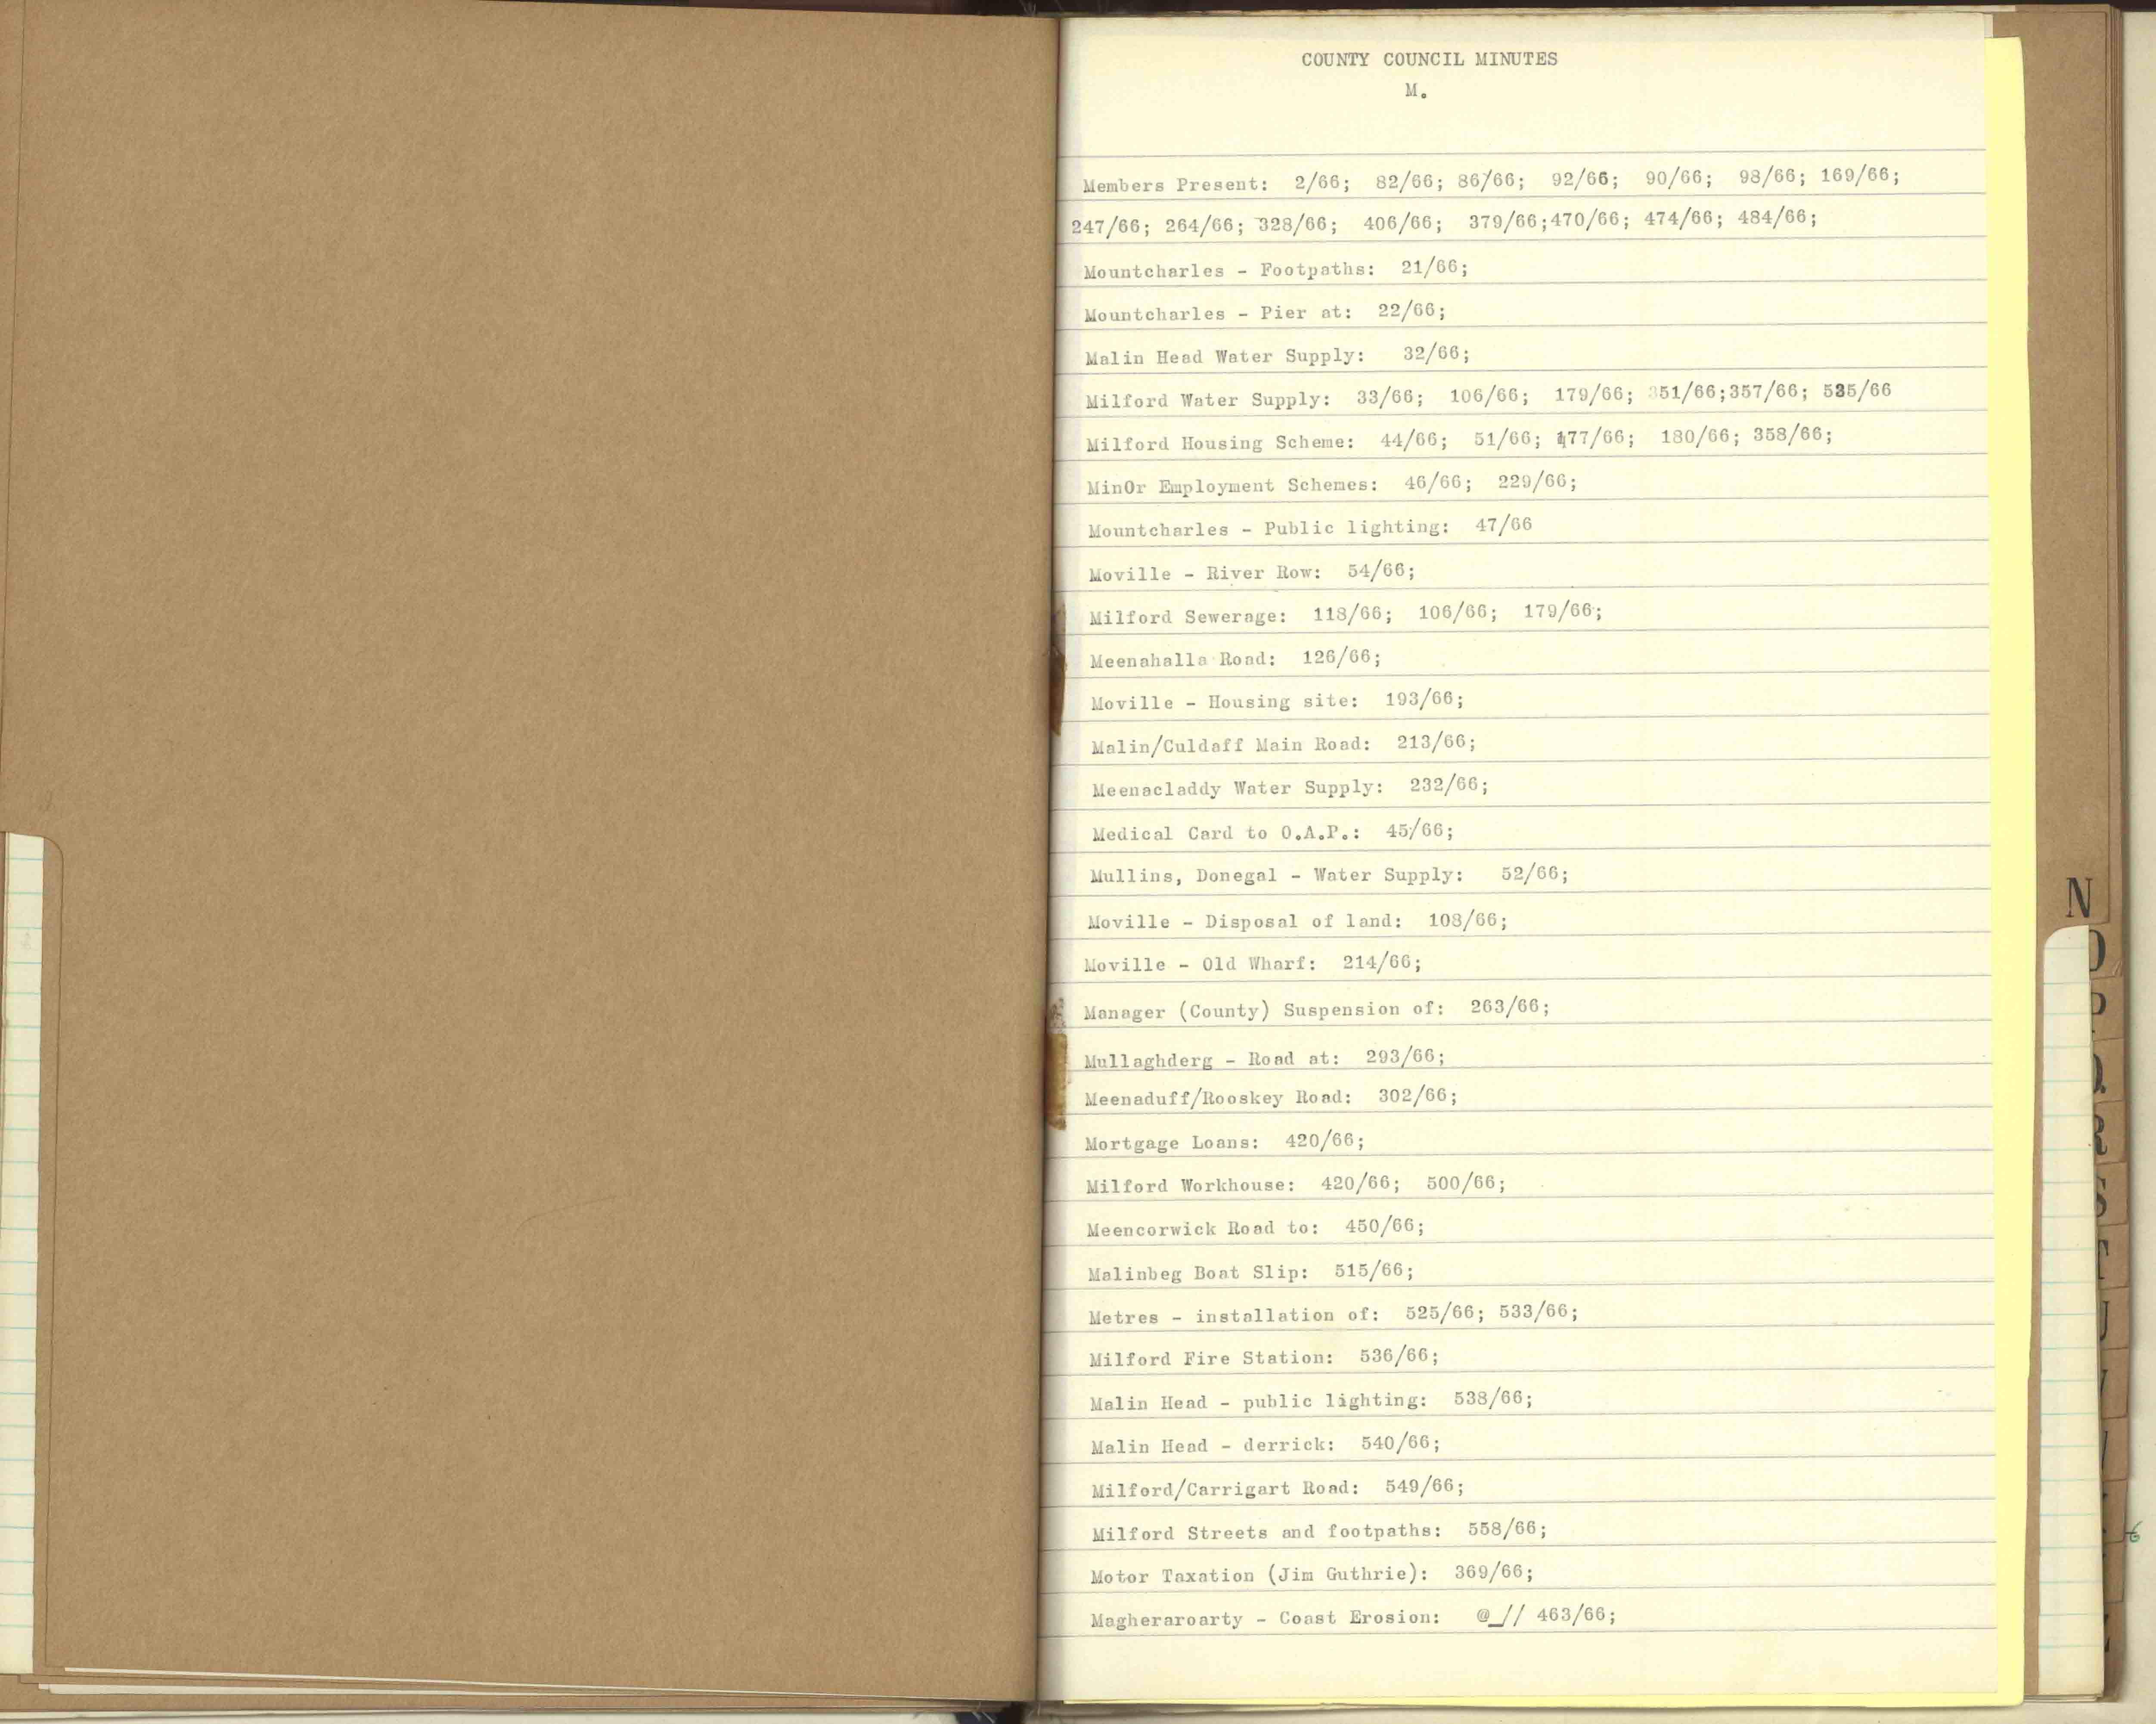 COUNTY COUNCIL MINUTES
M.
Members Present: 2/66; 82/66; 86/66; 92/66; 90/66; 98/66; 169/66;
247/66; 264/66; 328/66; 406/66; 379/66;470/66; 474/66; 484/66;
Mountcharles - Footpaths: 21/66;
Mountcharles - Pier at: 22/66;
Malin Head Water Supply: 32/66;
Milford Water Supply: 33/66; 106/66; 179/66; 351/66;357/66; 535/66
Milford Housing Scheme: 44/66; 51/66; 177/66; 180/66; 358/66;
MinOr Employment Schemes: 46/66; 229/66;
Mountcharles - Public lighting: 47/66
Moville - River Row: 54/66;
Milford Sewerage: 118/66; 106/66; 179/66;
Meenahalla Road: 126/66;
Moville - Housing site: 193/66;
Malin/Culdaff Main Road: 213/66;
Meenacladdy Water Supply: 232/66;
Medical Card to O.A.P.: 45/66;
Mullins, Donegal - Water Supply: 52/66;
Moville - Disposal of land: 108/66;
Moville - Old Wharf: 214/66;
Manager (County) Suspension of: 263/66;
Mullaghderg - Road at: 293/66;
Meenaduff/Rooskey Road: 302/66;
Mortgage Loans: 420/66;
Milford Workhouse: 420/66; 500/66;
Meencorwick Road to: 450/66;
Malinbeg Boat Slip: 515/66;
Metres - installation of: 525/66; 533/66;
Milford Fire Station: 536/66;
Malin Head - public lighting: 538/66;
Malin Head - derrick: 540/66;
Milford/Carrigart Road: 549/66;
Milford Streets and footpaths: 558/66;
Motor Taxation (Jim Guthrie): 369/66;
Magheraroarty - Coast Erosion: @_// 463/66;
N
O
P
Q
R
S
T
U